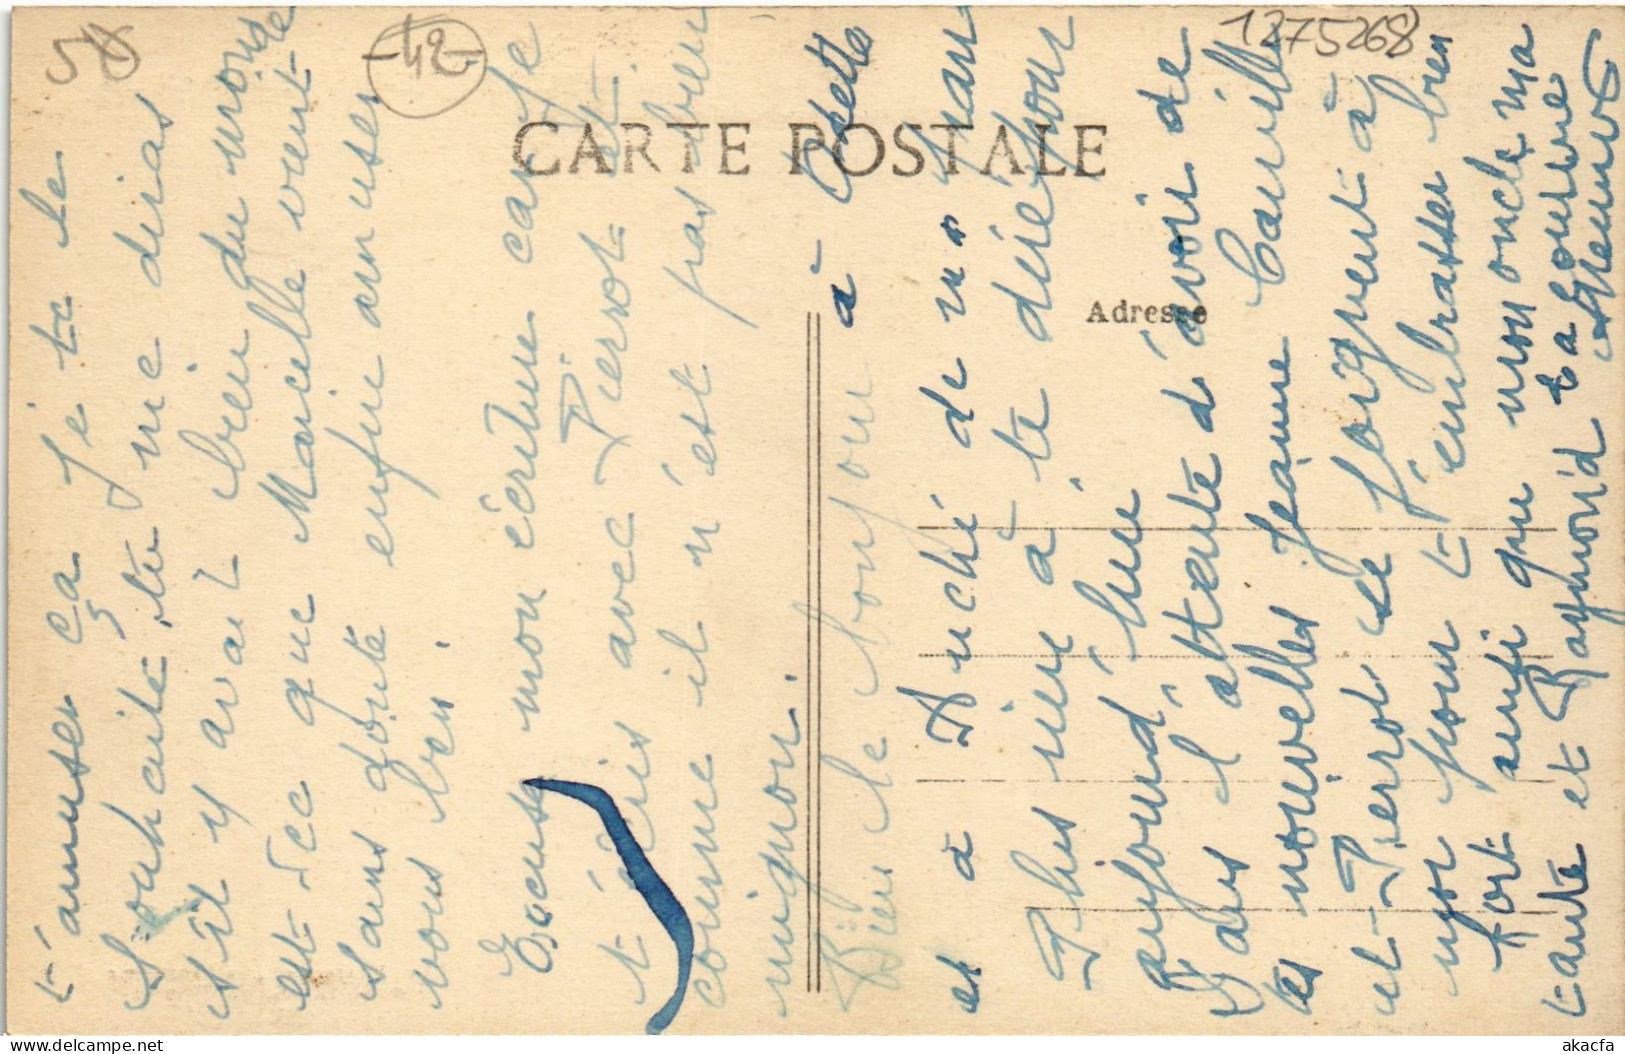 58
-42-
1275268
CARTE POSTALE
Adresse
t'amuser ça je te le
souhaite, tu me diras
s'il y avait bien du monde
est-ce que Marcelle vont
sans doute enfin amuser
vous bien.
Excuse mon écriture car je
t'écris avec Pierrot et
comme il n'est pas bien
mignon.
Bien le bonjour à Cette
et à de nos part
Plus rien à te dire pour
aujourd'hui
Dans l'attente d'avoir de
tes nouvelles Jeanne Camille
et Pierrot se joignent à
moi pour t'embrasser bien
fort ainsi que mon oncle ma
tante et Raymond ta cousine
delcampe.net
akacfa